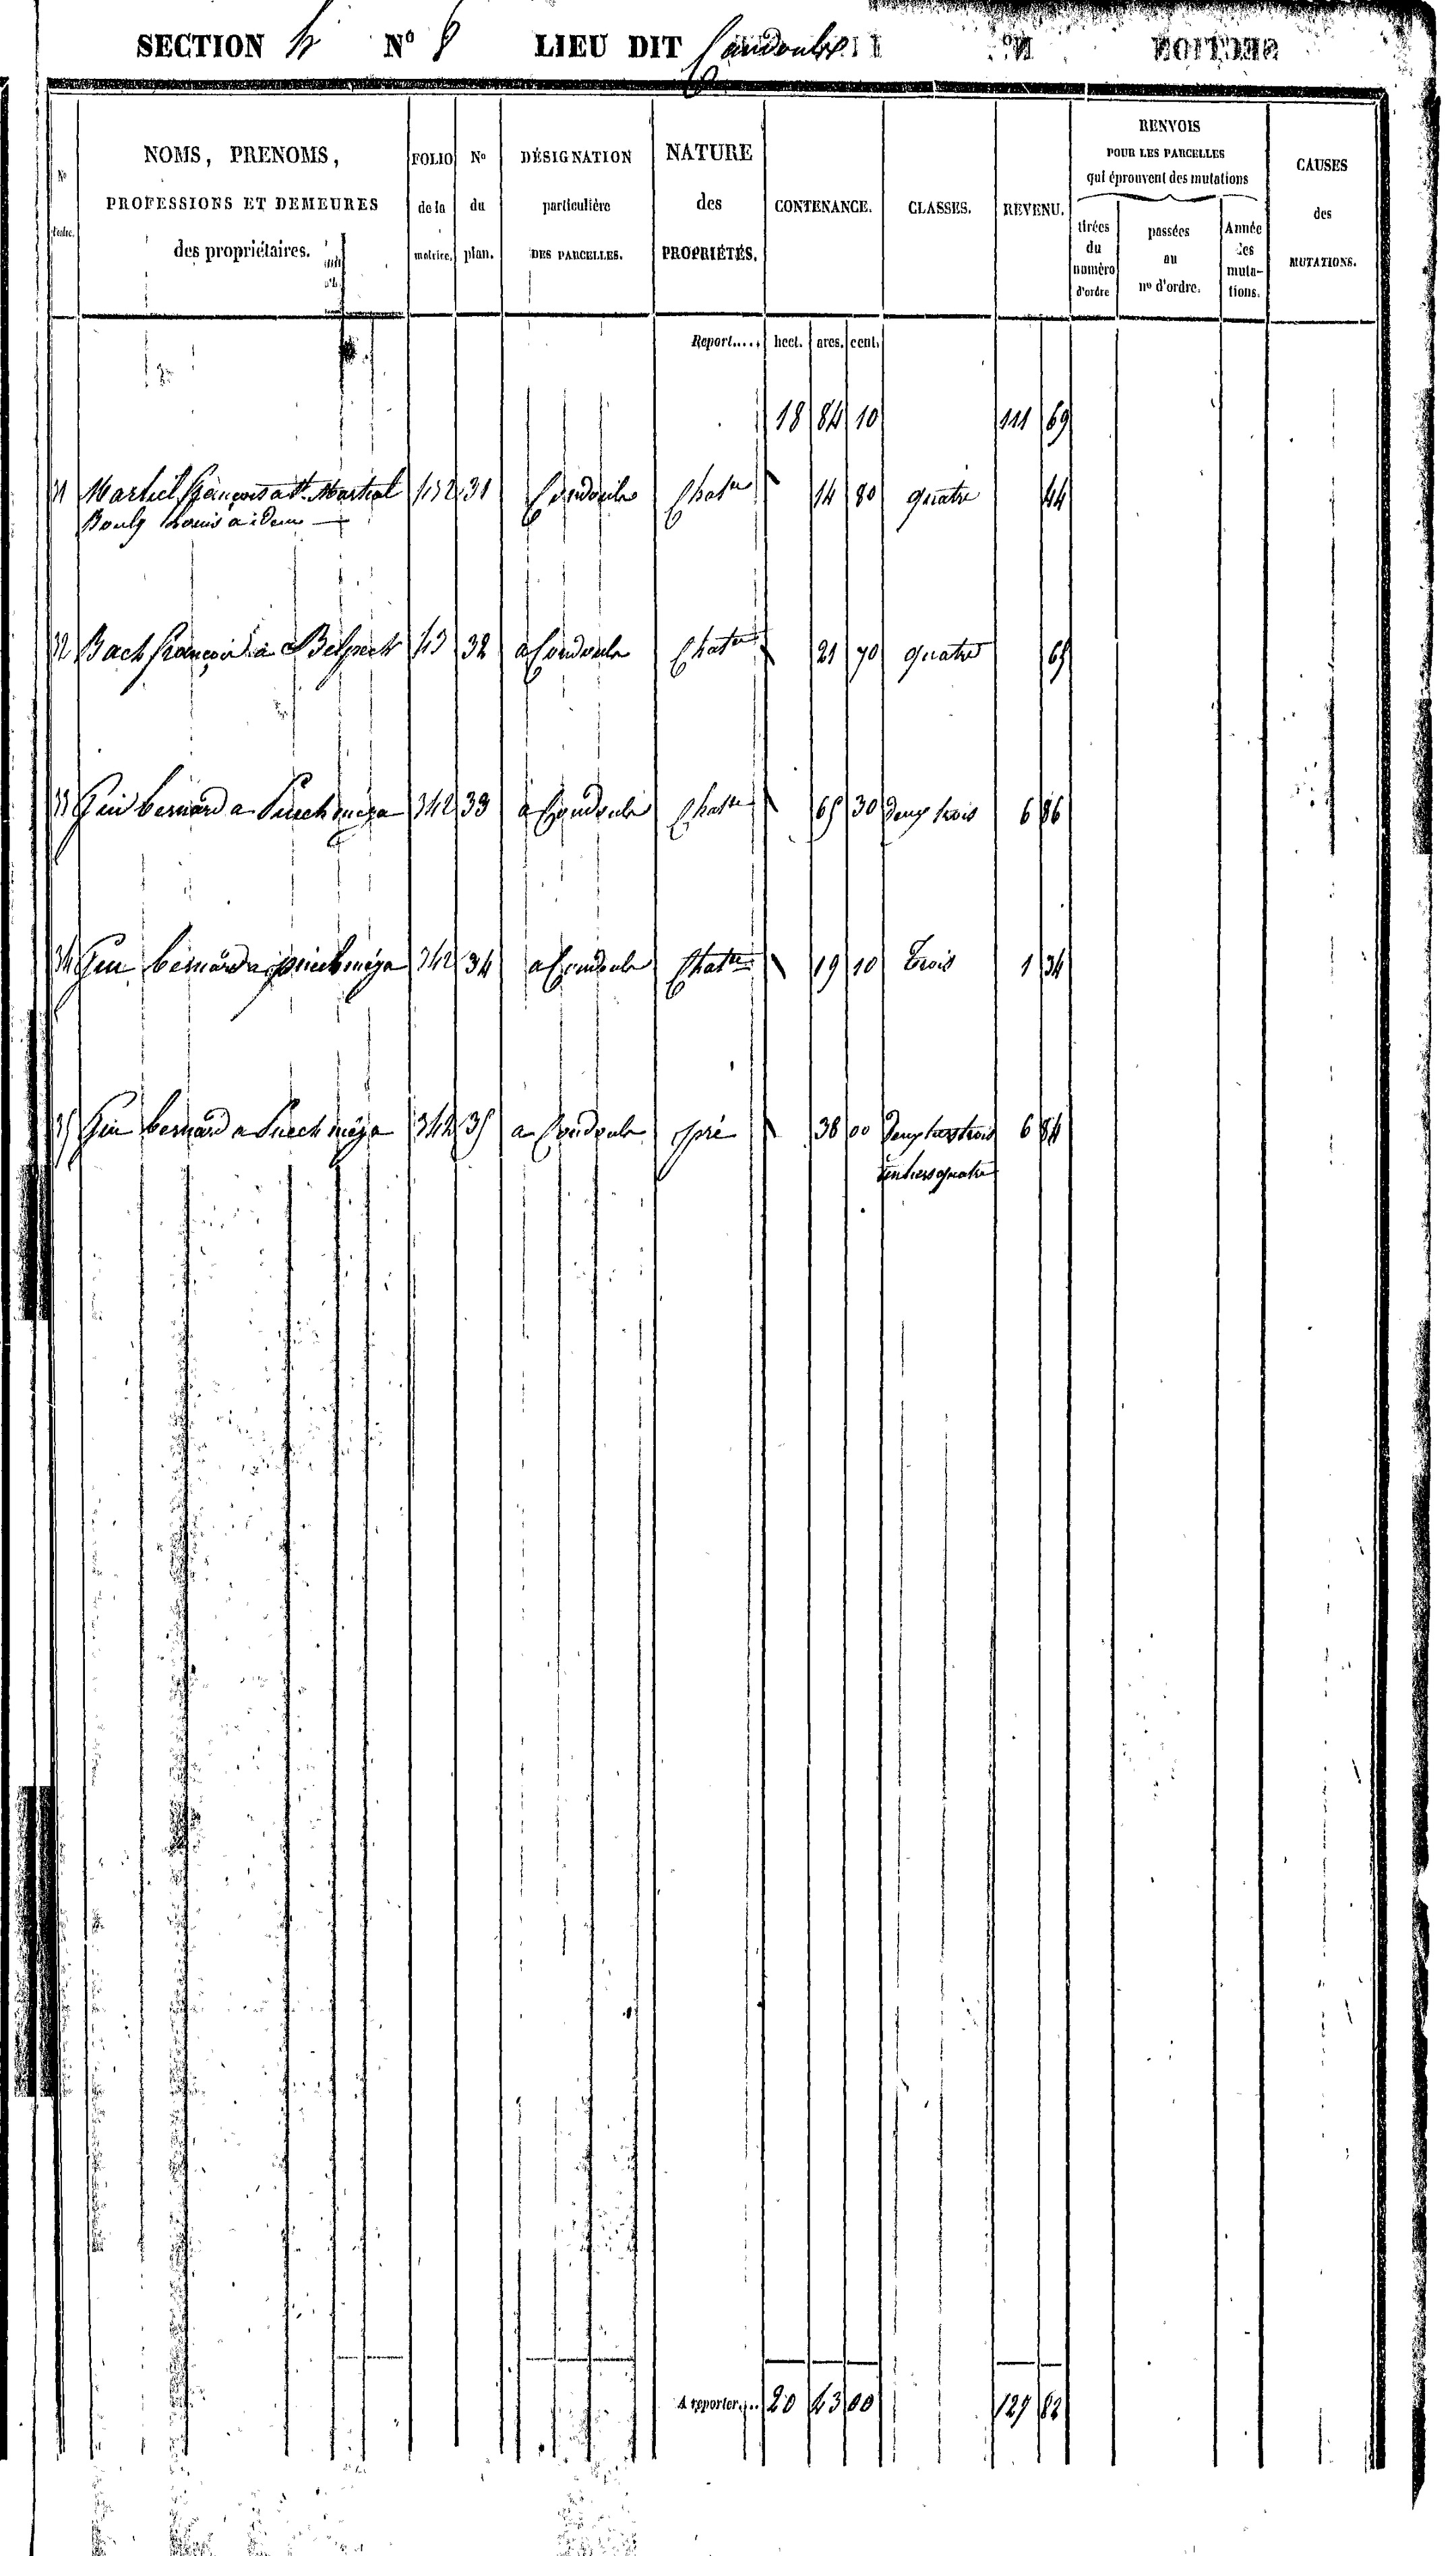 SECTION h N° 8 LIEU DIT Candoulre
N° d'ordre.
NOMS, PRENOMS,
PROFESSIONS ET DEMEURES
des propriétaires.
FOLIO
de la
matrice.
N°
du
plan.
DÉSIGNATION
particulière
DES PARCELLES.
NATURE
des
PROPRIÉTÉS.
CONTENANCE.
CLASSES.
REVENU.
RENVOIS
POUR LES PARCELLES
qui éprouvent des mutations
tirées
du
numéro
d'ordre
passées
au
n° d'ordre.
Année
des
muta-
tions.
CAUSES
des
MUTATIONS.
Report..... hect. ares. cent.
18 84 10 111 69
31 Martiel françois a St. Martial 31 Condoulre Chatre 14 80 quatre 44
Bouly Louis a idem
32 Bach françois a 43 32 a Condoule Chatre 21 70 quatre 65
33 Guin bernard a Puech méja 342 33 a Condoule Chatre 65 30 Deux trois 6 86
34 Guin bernard a puech méja 342 34 a Condoule Chatre 19 10 trois 1 34
35 Guin bernard a Puech méja 342 35 a Condoule pré 38 00 Deux tiers trois 6 84
un tiers quatre
A reporter.... 20 43 00 127 82